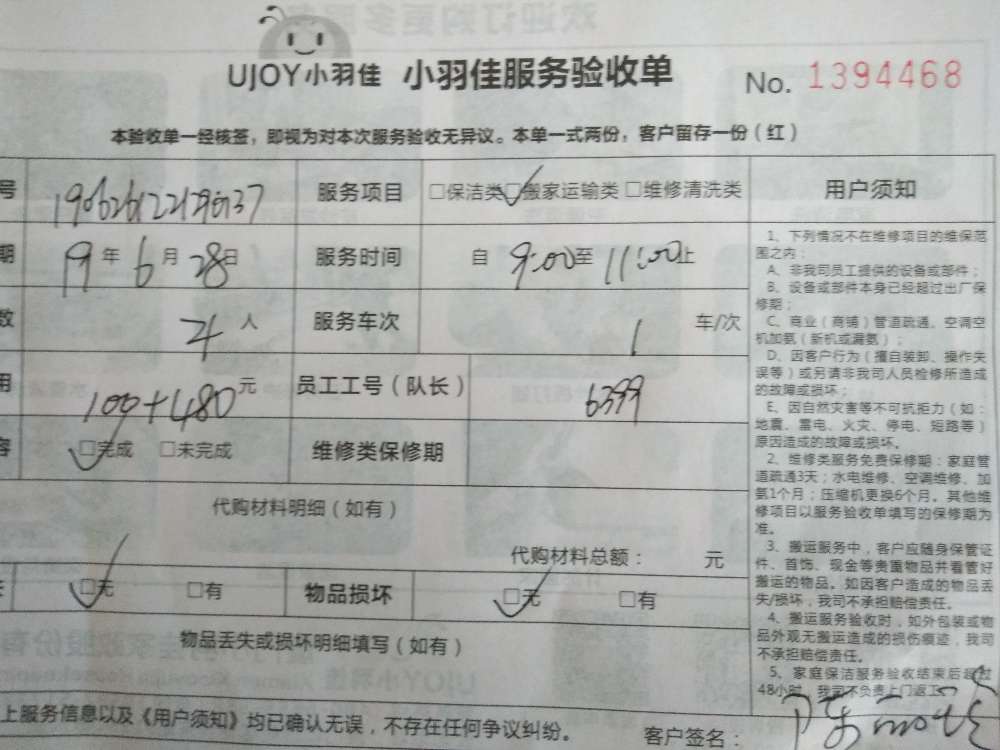 UJOY小羽佳 小羽佳服务验收单 No. 1394468
本验收单一经核签，即视为对本次服务验收无异议。本单一式两份，客户留存一份（红）
号 服务项目 □保洁类 □搬家运输类 □维修清洗类
期 19年6月28日 服务时间 自 9:00 至 11:00 止
数 4 人 服务车次 1 车/次
用 100+480 元 员工工号（队长） 6399
容 □完成 □未完成 维修类保修期
代购材料明细（如有）
代购材料总额： 元
□无 □有 物品损坏 □无 □有
物品丢失或损坏明细填写（如有）
上服务信息以及《用户须知》均已确认无误，不存在任何争议纠纷。
客户签名：
用户须知
1、下列情况不在维修项目的维保范
围之内：
A、非我司员工提供的设备或部件；
B、设备或部件本身已经超过出厂保
修期；
C、商业（商铺）管道疏通、空调空
机加氨（新机或漏氨）；
D、因客户行为（擅自装卸、操作失
误等）或另请非我司人员检修所造成
的故障或损坏；
E、因自然灾害等不可抗拒力（如：
地震、雷电、火灾、停电、短路等）
原因造成的故障或损坏。
2、维修类服务免费保修期：家庭管
道疏通3天；水电维修、空调维修、加
氨1个月；压缩机更换6个月。其他维
修项目以服务验收单填写的保修期为
准。
3、搬运服务中，客户应随身保管证
件、首饰、现金等贵重物品并看管好
搬运的物品。如因客户造成的物品丢
失/损坏，我司不承担赔偿责任。
4、搬运服务验收时，如外包装或物
品外观无搬运造成的损伤痕迹，我司
不承担赔偿责任。
5、家庭保洁服务验收结束后超过
48小时，我司不负责上门返工。